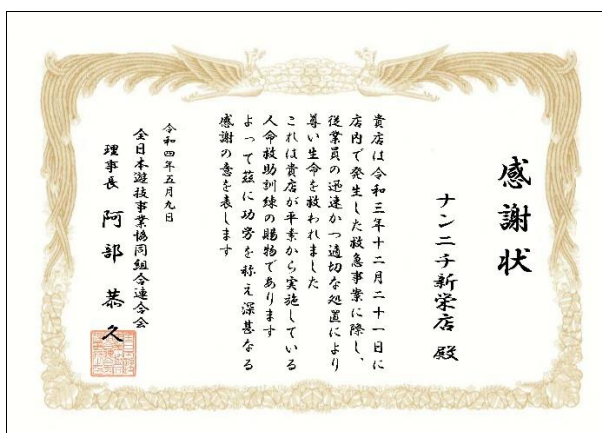 感謝状
ナンニチ新栄店 殿
貴店は令和三年十二月二十一日に
店内で発生した救急事業に際し、
従業員の迅速かつ適切な処置により
尊い生命を救われました
これは貴店が平素から実施している
人命救助訓練の賜物であります
よって茲に功労を称え深甚なる
感謝の意を表します
令和四年五月九日
全日本遊技事業協同組合連合会
理事長 阿部 恭久